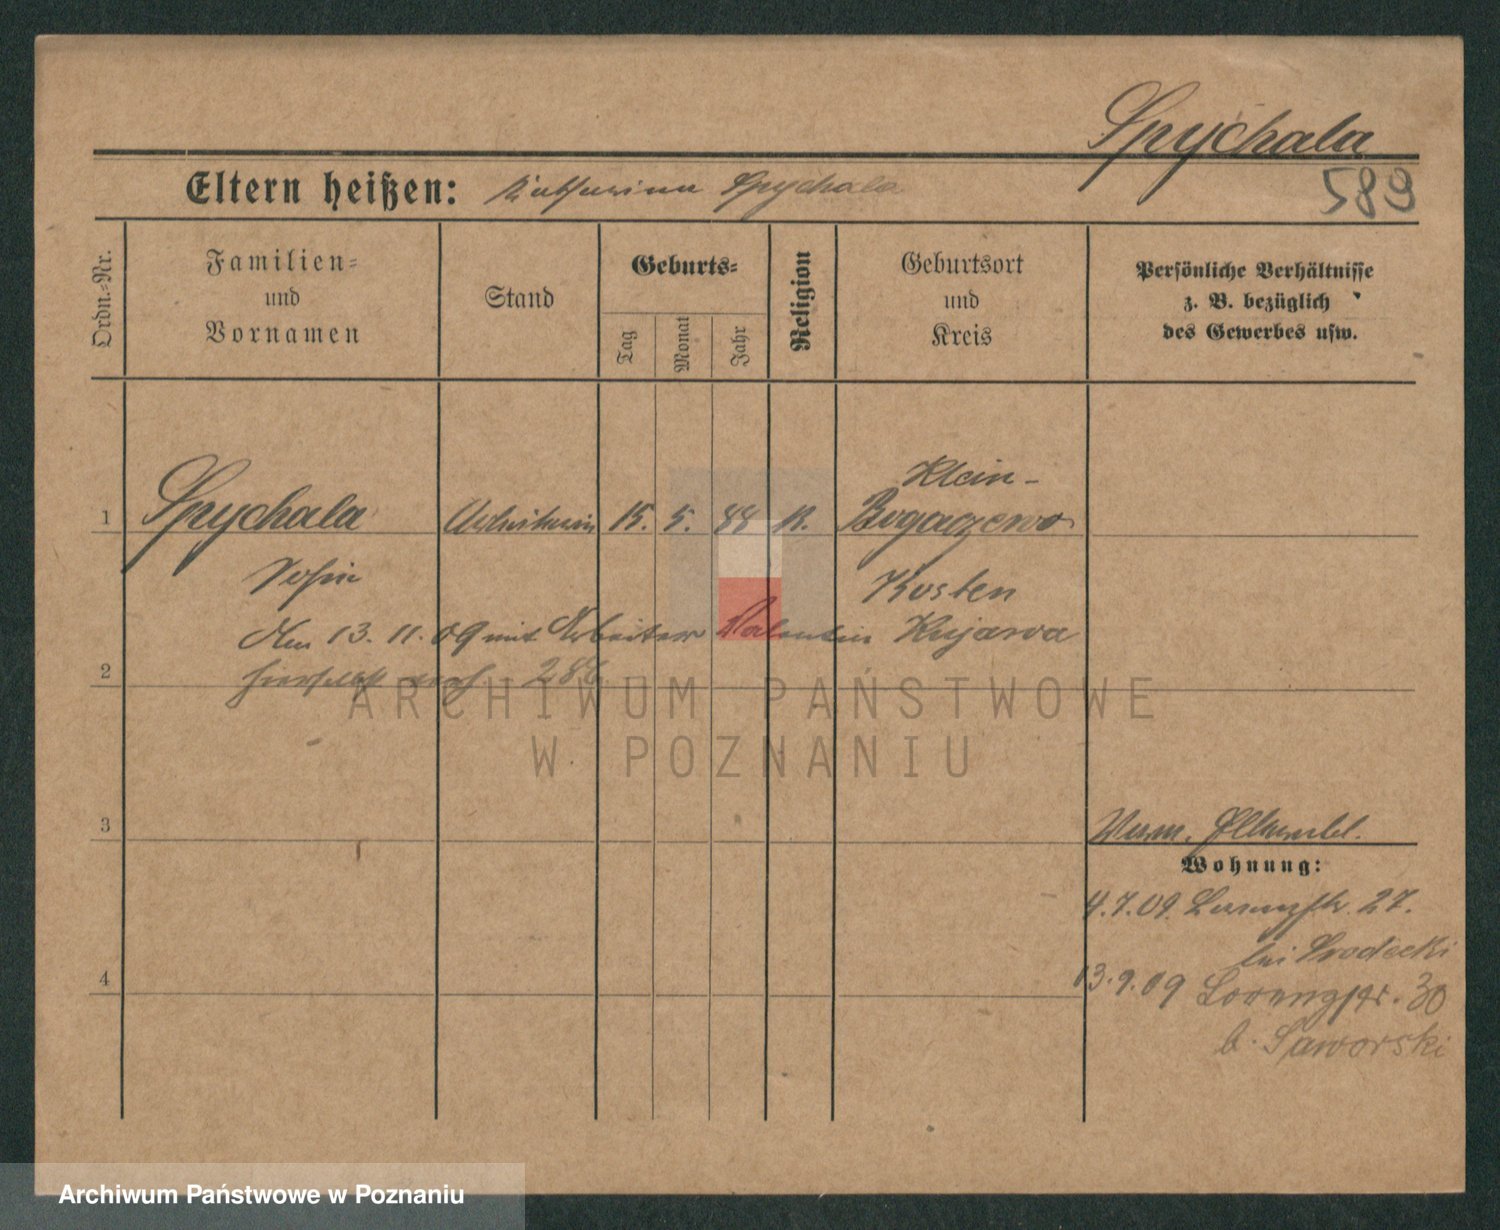 Spychala
Eltern heißen: Katharina Spychala
589
Ordn.-Nr.
Familien-
und
Vornamen
Stand
Geburts-
Tag
Monat
Jahr
Religion
Geburtsort
und
Kreis
Persönliche Verhältnisse
z. B. bezüglich
des Gewerbes usw.
Klein-
1 Spychala Arbeiterin 15. 5. 88 K. Bogaczewo
Sofie Kosten
Am 13. 11. 09 mit Arbeiter Valentin Kujawa
2 hierselbst 286
ARCHIWUM PAŃSTWOWE
W POZNANIU
3
Wohnung:
4.7.09. Lorenzstr. 27.
bei Srodecki
4
13.9.09 Lorenzstr. 30
b. Jaworski
Archiwum Państwowe w Poznaniu